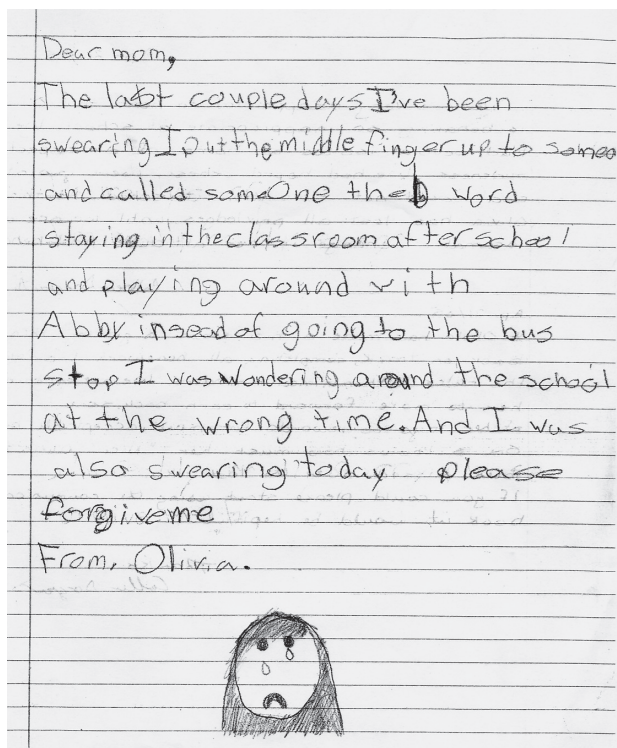 Dear mom,
The last couple days I've been
swearing I put the middle finger up to someo
and called someOne the b word
staying in the classroom after school
and playing around with
Abby insead of going to the bus
stop I was wondering around the school
at the wrong time. And I was
also swearing today please
forgive me
From, Olivia.